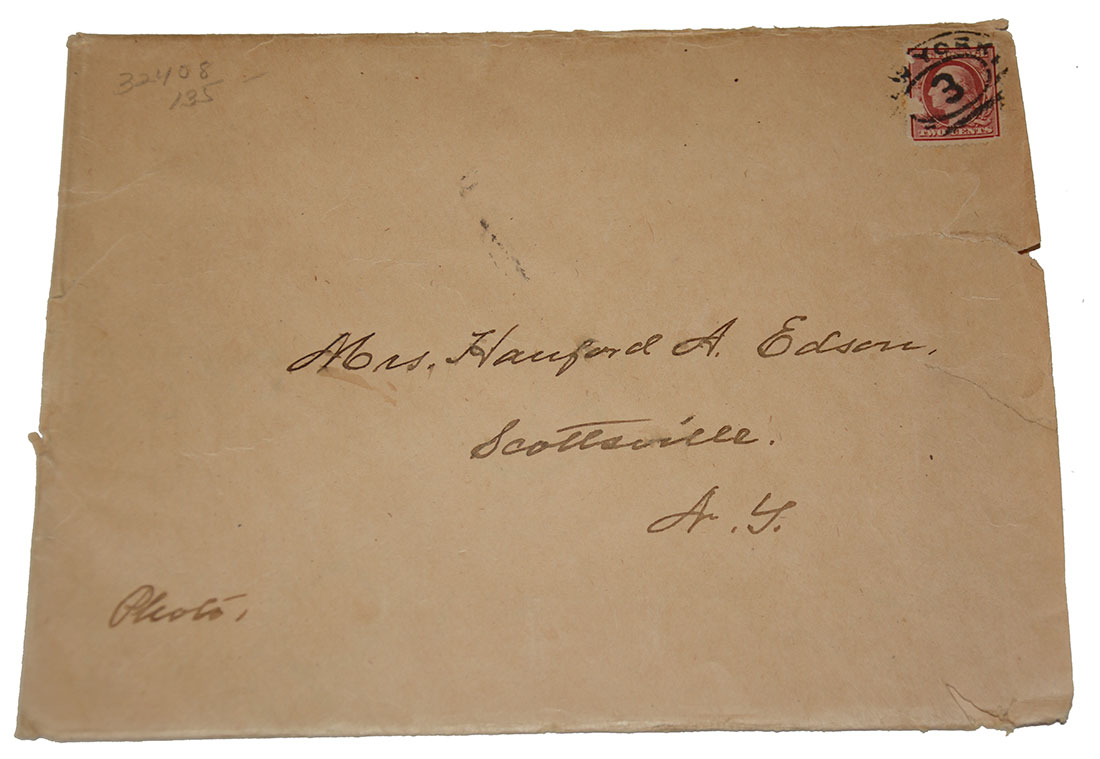 32408
135
YORK
3
TWO CENTS
Mrs. Hanford A. Edson,
Scottsville.
N. Y.
Photo,